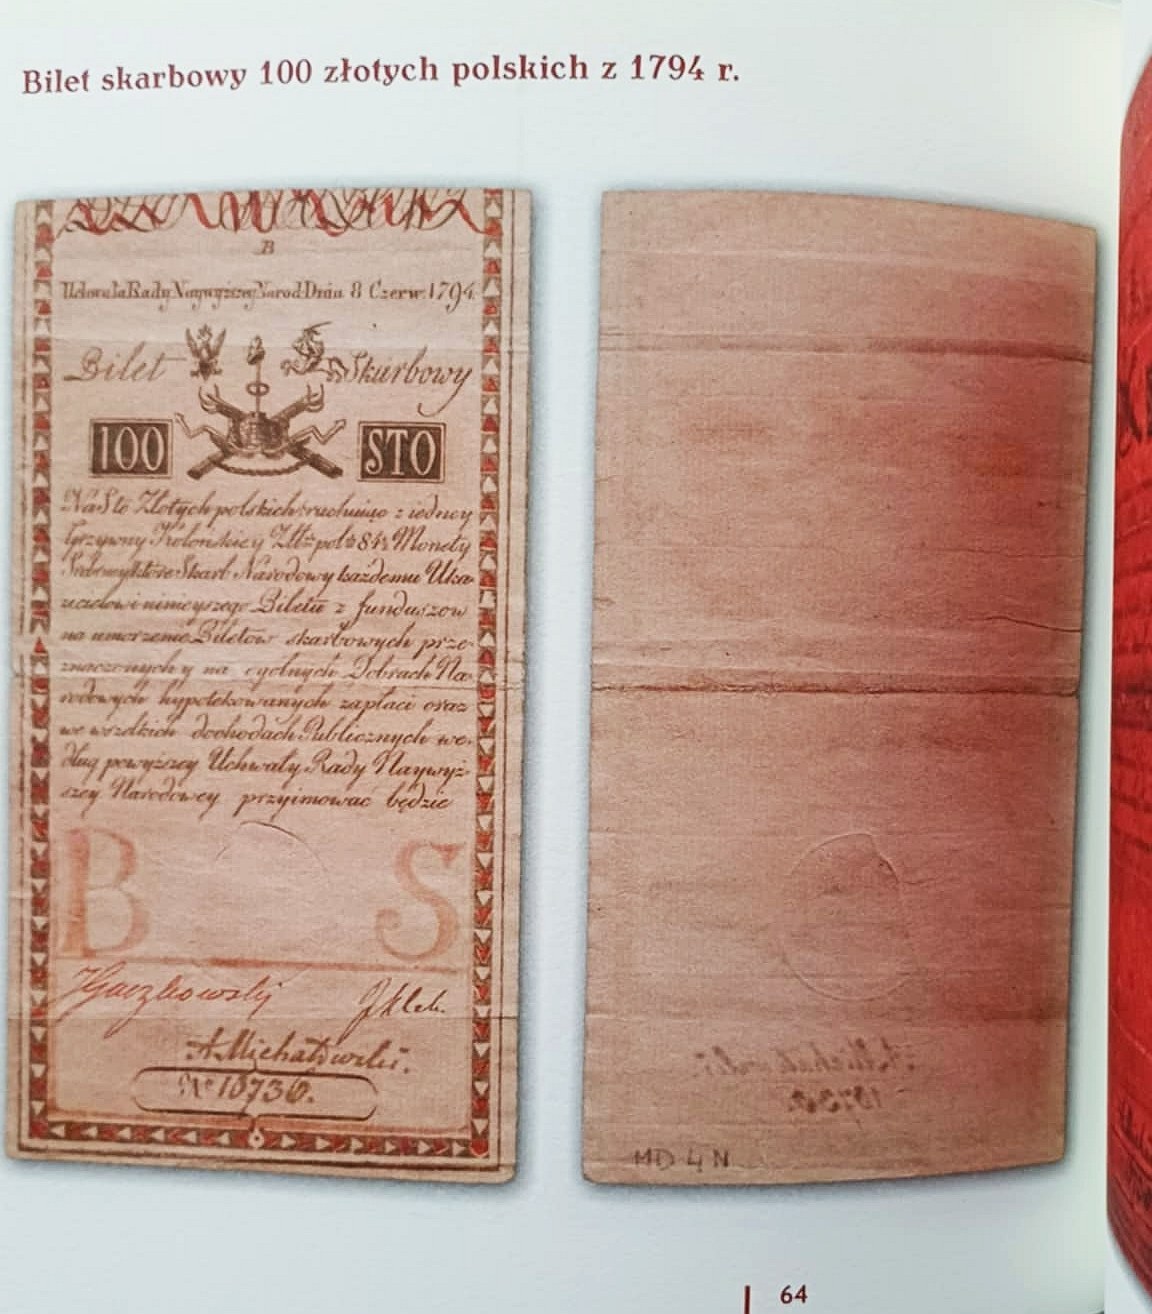 Bilet skarbowy 100 złotych polskich z 1794 r.
B
Uchwała Rady Naywyższey Narod: Dnia 8 Czerw: 1794
Bilet Skarbowy
100 STO
Na Sto Złotych polskich rachuiąc z iedney
Grzywny Kolońskiey Złł: pol: 84½ Monety
Srebrney które Skarb Narodowy każdemu Uka-
zicielowi ninieyszego Biletu z funduszow
na umorzenie Biletow skarbowych prze-
znaczonych y na ogolnych Dobrach Na-
rodowych hypotekowanych zapłaci oraz
we wszelkich dochodach Publicznych we-
dług powyższey Uchwały Rady Naywyż-
szey Narodowey przyimować będzie
B S
A. Michałowski.
Nº 16736.
MD 4 N
64